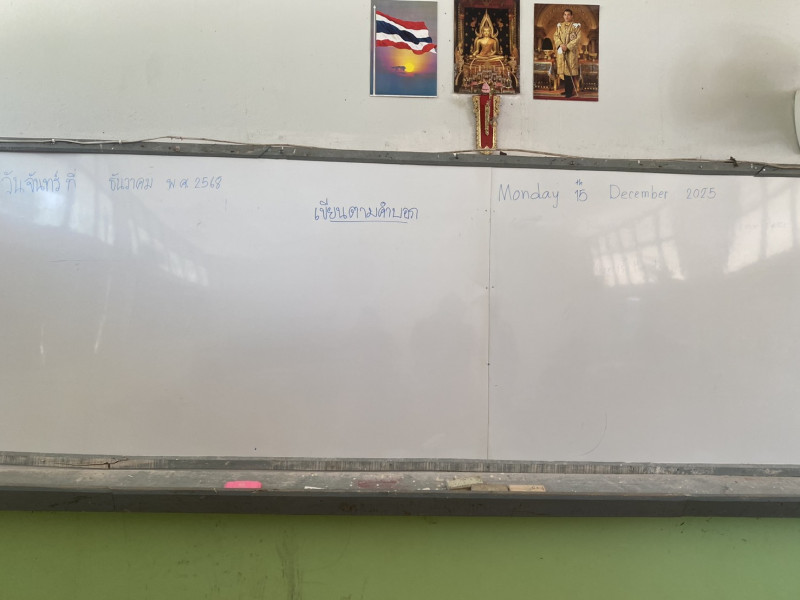 วันจันทร์ ที่ ธันวาคม พ.ศ. 2568
Monday 15th December 2025
เขียนตามคำบอก